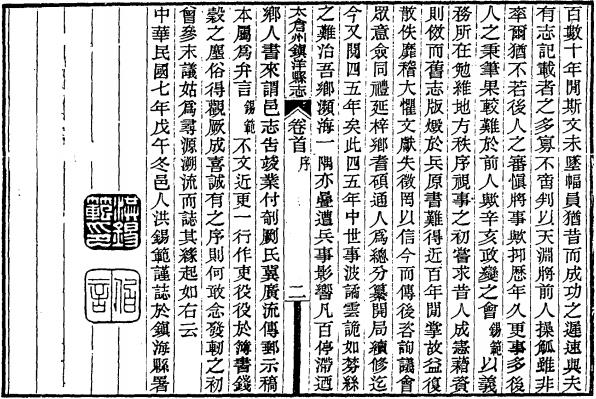 百數十年間斯文未墜幅員猶昔而成功之遲速與夫
有志記載者之多寡不啻判以天淵將前人操觚雖非
率爾猶不若後人之審愼將事歟抑歷年久更事多後
人之秉筆果較難於前人歟辛亥政變之會錫範以義
務所在勉維地方秩序視事之初嘗求昔人成憲藉資
則傚而舊志版燬於兵原書難得近百年間掌故益復
散佚靡稽大懼文獻失徵罔以信今而傳後咨詢議會
眾意僉同禮延梓鄉耆碩通人爲總分纂開局續修迄
今又閱四五年矣此四五年中世事波譎雲詭如棼絲
之難治吾鄉瀕海一隅亦疊遭兵事影響凡百停滯迺
太倉州鎭洋縣志
卷首
序
二
鄉人書來謂邑志告竣業付剞劂氏冀廣流傳郵示稿
本屬爲弁言錫範不文近更一行作吏役役於簿書錢
穀之塵俗得觀厥成喜誠有之序則何敢念發軔之初
曾參末議姑爲尋源溯流而誌其緣起如右云
中華民國七年戊午冬邑人洪錫範謹誌於鎭海縣署
洪錫範印
伯言